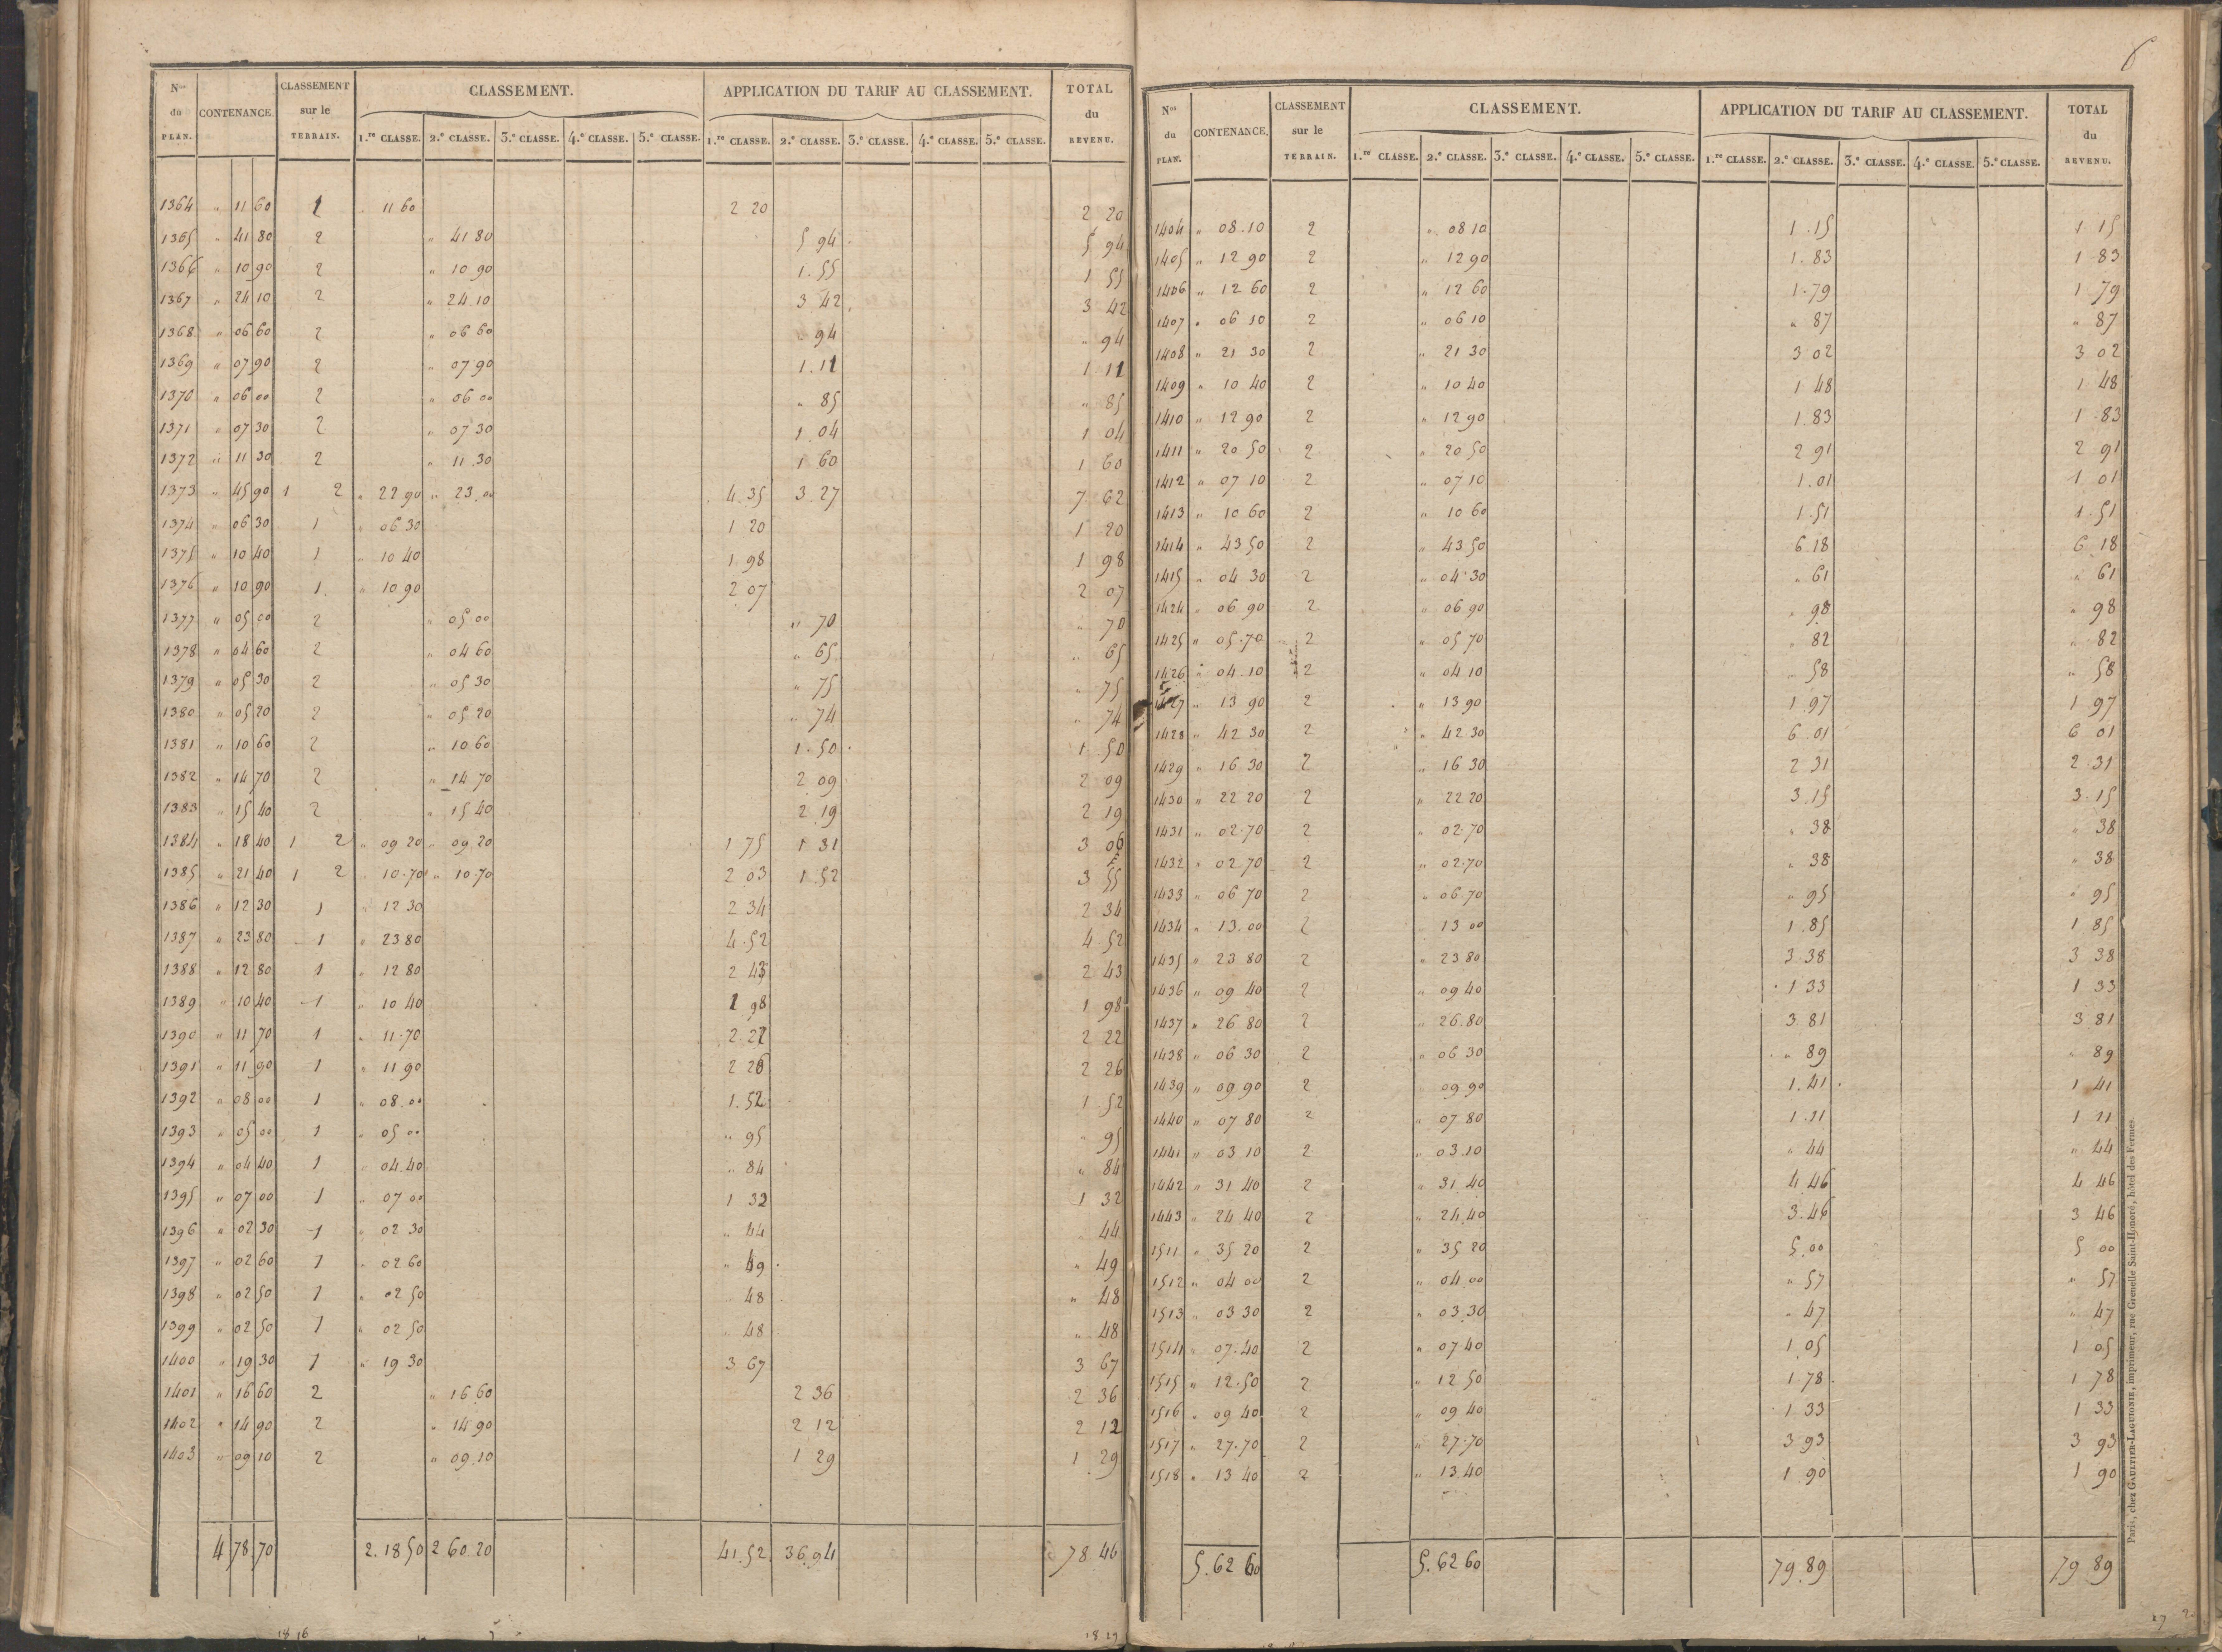 6
Nos du PLAN. CONTENANCE. CLASSEMENT sur le TERRAIN. CLASSEMENT. APPLICATION DU TARIF AU CLASSEMENT. TOTAL du REVENU.
1.re CLASSE. 2.e CLASSE. 3.e CLASSE. 4.e CLASSE. 5.e CLASSE. 1.re CLASSE. 2.e CLASSE. 3.e CLASSE. 4.e CLASSE. 5.e CLASSE.
1364 " 11 60 1 " 11 60 2 20 2 20
1365 " 41 80 2 " 41 80 5 94 5 94
1366 " 10 90 2 " 10 90 1.55 1 55
1367 " 24 10 2 " 24 10 3 42 3 42
1368 " 06 60 2 " 06 60 " 94 " 94
1369 " 07 90 2 " 07 90 1.11 1 11
1370 " 06 00 2 " 06 00 " 85 " 85
1371 " 07 30 2 " 07 30 1 04 1 04
1372 " 11 30 2 " 11 30 1 60 1 60
1373 " 45 90 1 2 " 22 90 " 23 00 4.35 3.27 7 62
1374 " 06 30 1 " 06 30 1 20 1 20
1375 " 10 40 1 " 10 40 1 98 1 98
1376 " 10 90 1 " 10 90 2 07 2 07
1377 " 05 00 2 " 05 00 " 70 " 70
1378 " 04 60 2 " 04 60 " 65 " 65
1379 " 05 30 2 " 05 30 " 75 " 75
1380 " 05 20 2 " 05 20 " 74 " 74
1381 " 10 60 2 " 10 60 1.50 1 50
1382 " 14 70 2 " 14 70 2 09 2 09
1383 " 15 40 2 " 15 40 2 19 2 19
1384 " 18 40 1 2 " 09 20 " 09 20 1 75 1 31 3 06
1385 " 21 40 1 2 " 10.70 " 10.70 2 03 1 52 3 55
1386 " 12 30 1 " 12 30 2 34 2 34
1387 " 23 80 1 " 23 80 4.52 4 52
1388 " 12 80 1 " 12 80 2 43 2 43
1389 " 10 40 1 " 10 40 1 98 1 98
1390 " 11 70 1 " 11.70 2 22 2 22
1391 " 11 90 1 " 11 90 2 26 2 26
1392 " 08 00 1 " 08.00 1.52 1 52
1393 " 05 00 1 " 05 00 " 95 " 95
1394 " 04 40 1 " 04.40 " 84 " 84
1395 " 07 00 1 " 07 00 1 32 1 32
1396 " 02 30 1 " 02 30 " 44 " 44
1397 " 02 60 1 " 02 60 " 49 " 49
1398 " 02 50 1 " 02 50 48 " 48
1399 " 02 50 1 " 02 50 " 48 " 48
1400 " 19 30 1 " 19 30 3 67 3 67
1401 " 16 60 2 " 16 60 2 36 2 36
1402 " 14 90 2 " 14 90 2 12 2 12
1403 " 09 10 2 " 09.10 1 29 1 29
4 78 70 2.18 50 2 60 20 41.52 36.94 78 46
Nos du PLAN. CONTENANCE. CLASSEMENT sur le TERRAIN. CLASSEMENT. APPLICATION DU TARIF AU CLASSEMENT. TOTAL du REVENU.
1.re CLASSE. 2.e CLASSE. 3.e CLASSE. 4.e CLASSE. 5.e CLASSE. 1.re CLASSE. 2.e CLASSE. 3.e CLASSE. 4.e CLASSE. 5.e CLASSE.
1404 " 08.10 2 " 08 10 1.15 1 15
1405 " 12 90 2 " 12 90 1.83 1 83
1406 " 12 60 2 " 12 60 1.79 1 79
1407 " 06 10 2 " 06 10 " 87 " 87
1408 " 21 30 2 " 21 30 3 02 3 02
1409 " 10 40 2 " 10 40 1 48 1 48
1410 " 12 90 2 " 12 90 1.83 1 83
1411 " 20 50 2 " 20 50 2 91 2 91
1412 " 07 10 2 " 07 10 1.01 1 01
1413 " 10 60 2 " 10 60 1.51 1.51
1414 " 43 50 2 " 43 50 6.18 6 18
1415 " 04 30 2 " 04 30 " 61 " 61
1424 " 06 90 2 " 06 90 " 98 " 98
1425 " 05.70 2 " 05 70 " 82 " 82
1426 " 04.10 2 " 04 10 " 58 " 58
1427 " 13 90 2 " 13 90 1.97 1 97
1428 " 42 30 2 " 42 30 6.01 6 01
1429 " 16 30 2 " 16 30 2 31 2 31
1430 " 22 20 2 " 22 20 3.15 3.15
1431 " 02.70 2 " 02.70 " 38 " 38
1432 " 02.70 2 " 02.70 " 38 " 38
1433 " 06 70 2 " 06.70 " 95 " 95
1434 " 13.00 2 13 00 1.85 1 85
1435 " 23 80 2 " 23 80 3 38 3 38
1436 " 09 40 2 " 09 40 1 33 1 33
1437 " 26 80 2 " 26.80 3 81 3 81
1438 " 06 30 2 " 06 30 " 89 " 89
1439 " 09 90 2 " 09 90 1.41 1 41
1440 " 07 80 2 " 07 80 1.11 1 11
1441 " 03 10 2 " 03.10 " 44 " 44
1442 " 31 40 2 " 31 40 4.46 4 46
1443 " 24 40 2 " 24.40 3.46 3 46
1511 " 35 20 2 " 35 20 5.00 5 00
1512 " 04 00 2 " 04 00 " 57 " 57
1513 " 03 30 2 " 03.30 " 47 " 47
1514 " 07.40 2 " 07.40 1.05 1 05
1515 " 12.50 2 " 12 50 1.78 1 78
1516 " 09 40 2 " 09 40 1 33 1 33
1517 " 27.70 2 " 27.70 3 93 3 93
1518 " 13 40 2 " 13.40 1.90 1 90
5.62 60 5.62 60 79.89 79 89
Paris, chez GAULTIER-LAGUIONIE, imprimeur, rue Grenelle Saint-Honoré, hôtel des Fermes